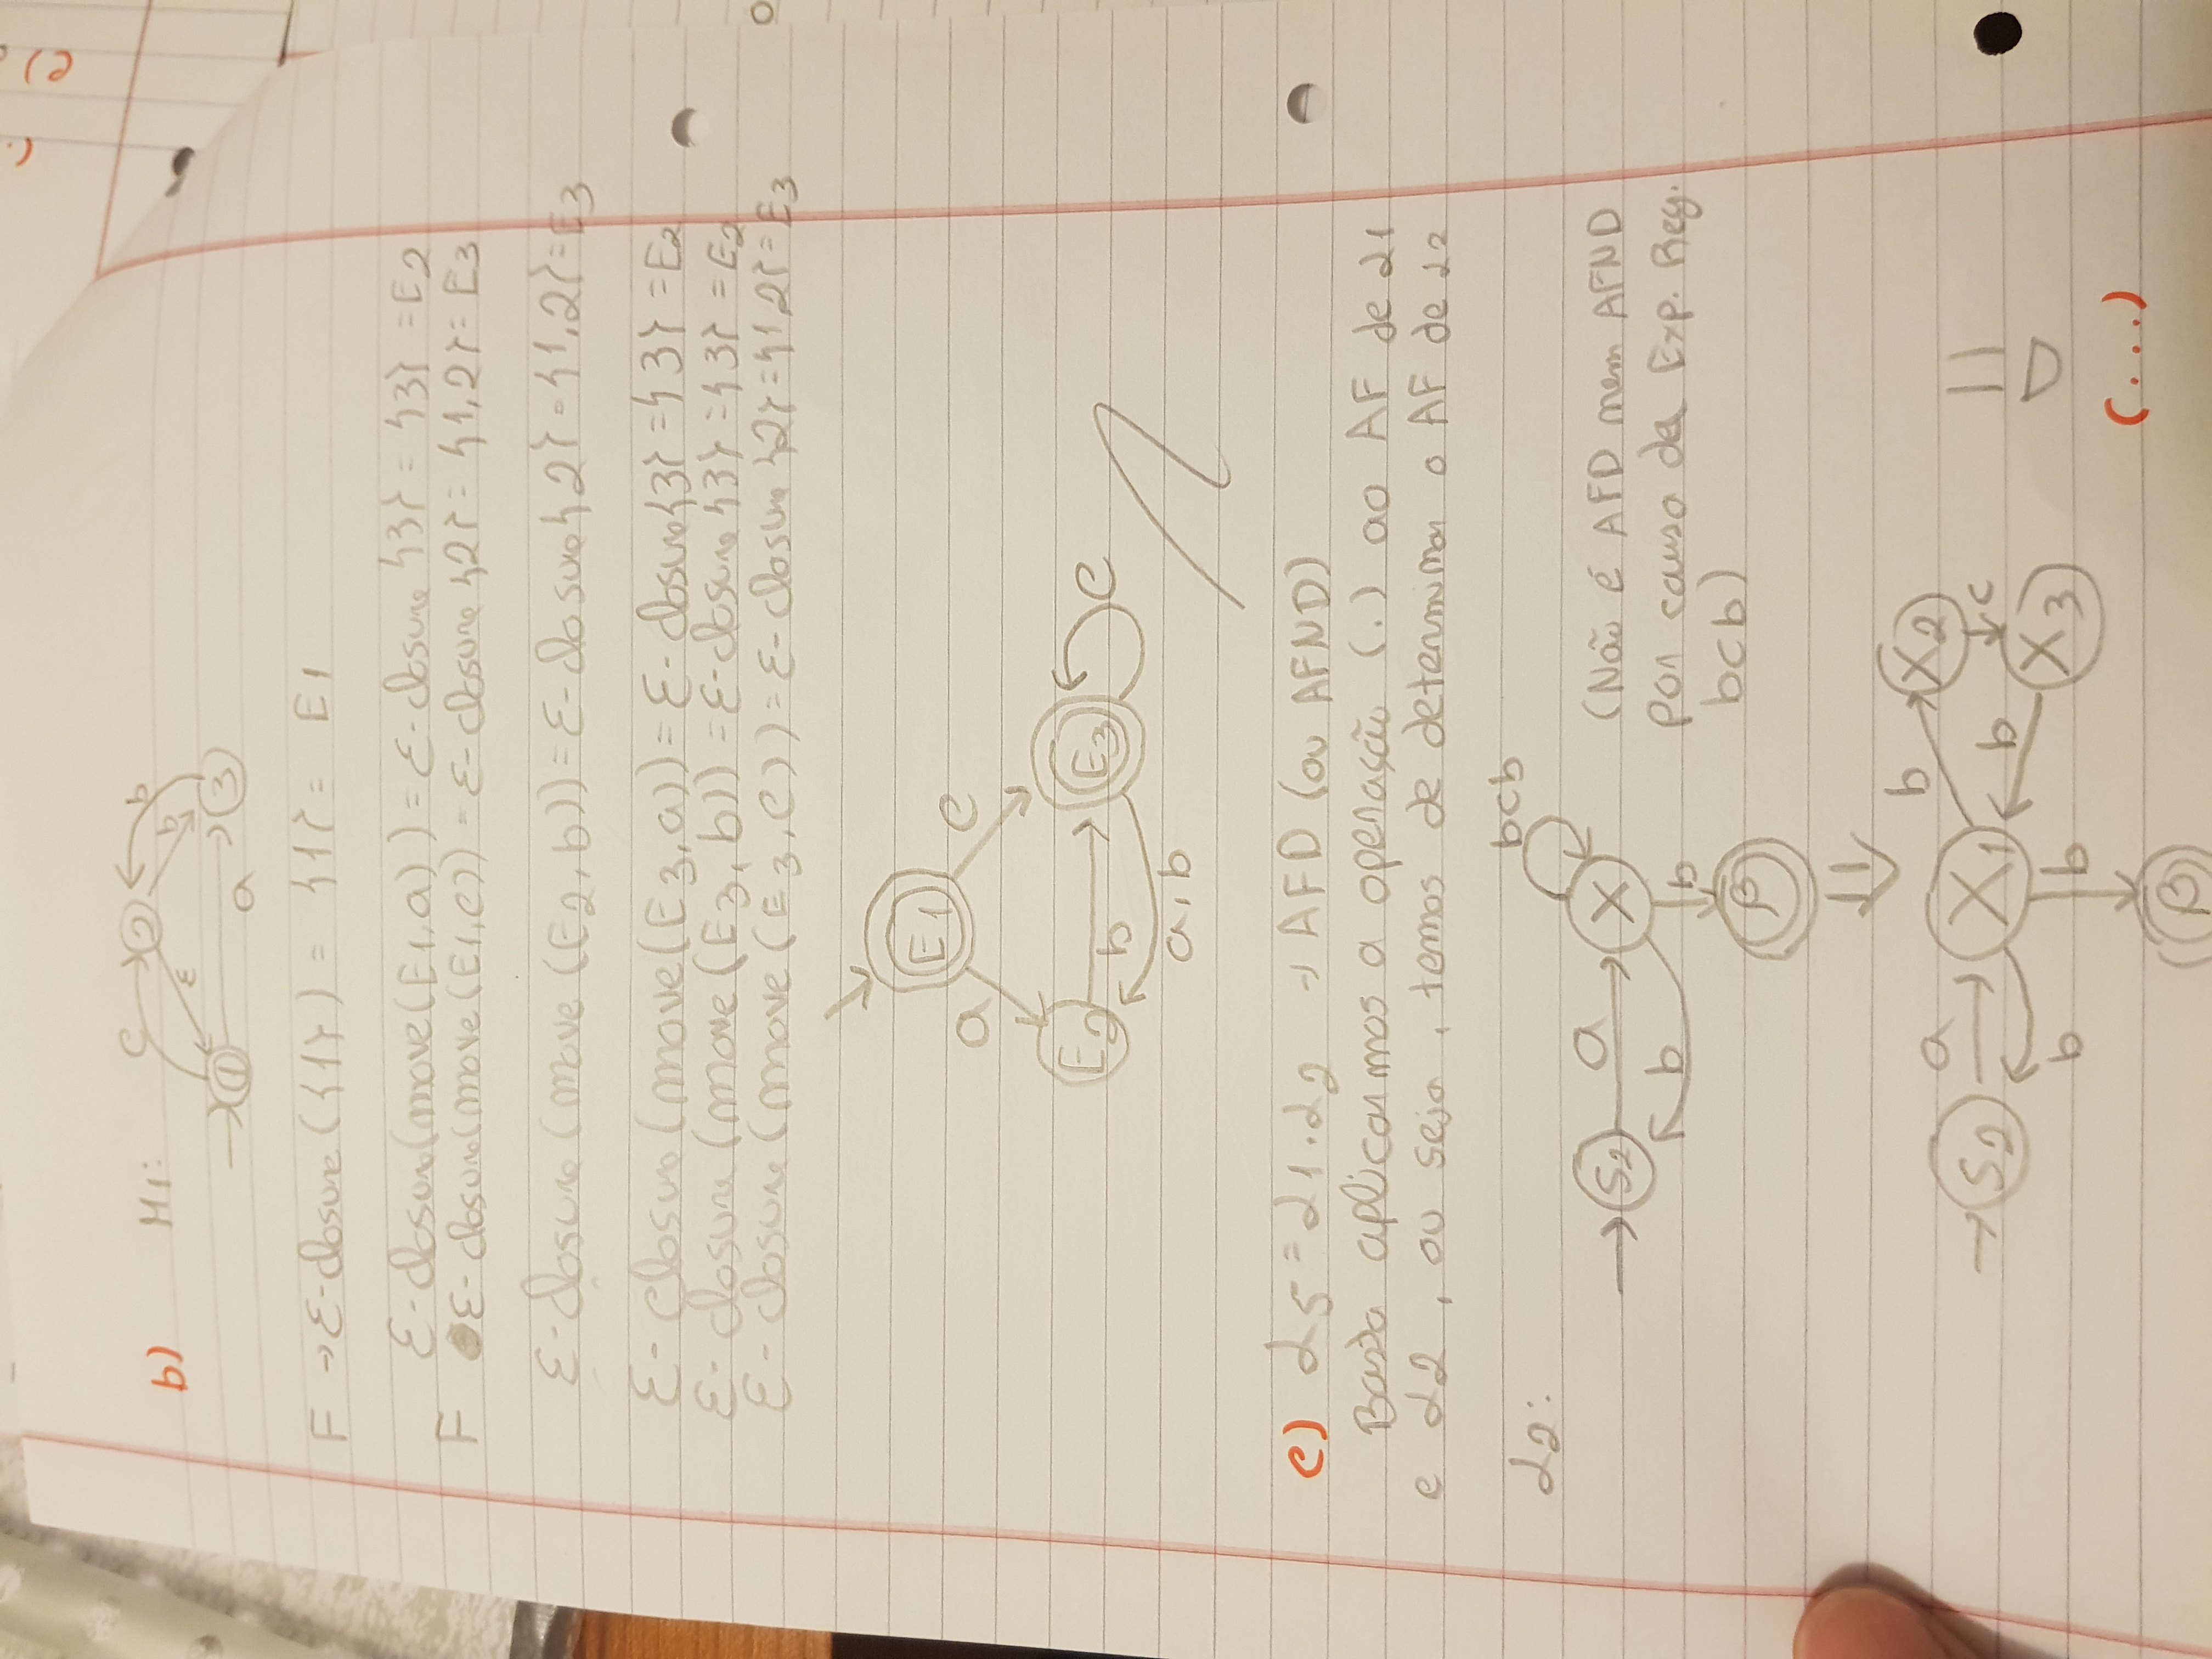 b) M1:
c 2 b
b
ε
1 a 3
F → ε-closure({1}) = {1} = E1
ε-closure(move(E1,a)) = ε-closure {3} = {3} = E2
F ε-closure(move(E1,c)) = ε-closure {2} = {1,2} = E3
ε-closure(move(E2,b)) = ε-closure{2} = {1,2} = E3
ε-closure(move(E3,a)) = ε-closure{3} = {3} = E2
ε-closure(move(E3,b)) = ε-closure {3} = {3} = E2
ε-closure(move(E3,c)) = ε-closure {2} = {1,2} = E3
E1
a c
E2 b E3 c
a,b
c) L5 = L1.L2 → AFD (ou AFND)
Basta aplicarmos a operação (.) ao AF de L1
e L2, ou seja, temos de determinar o AF de L2
L2:
bcb
S2 a X
b b
β
(Não é AFD nem AFND
por causa da Exp. Reg.
bcb)
⇓
S2 a X1 b X2
c
b X3
b b
β
(...)